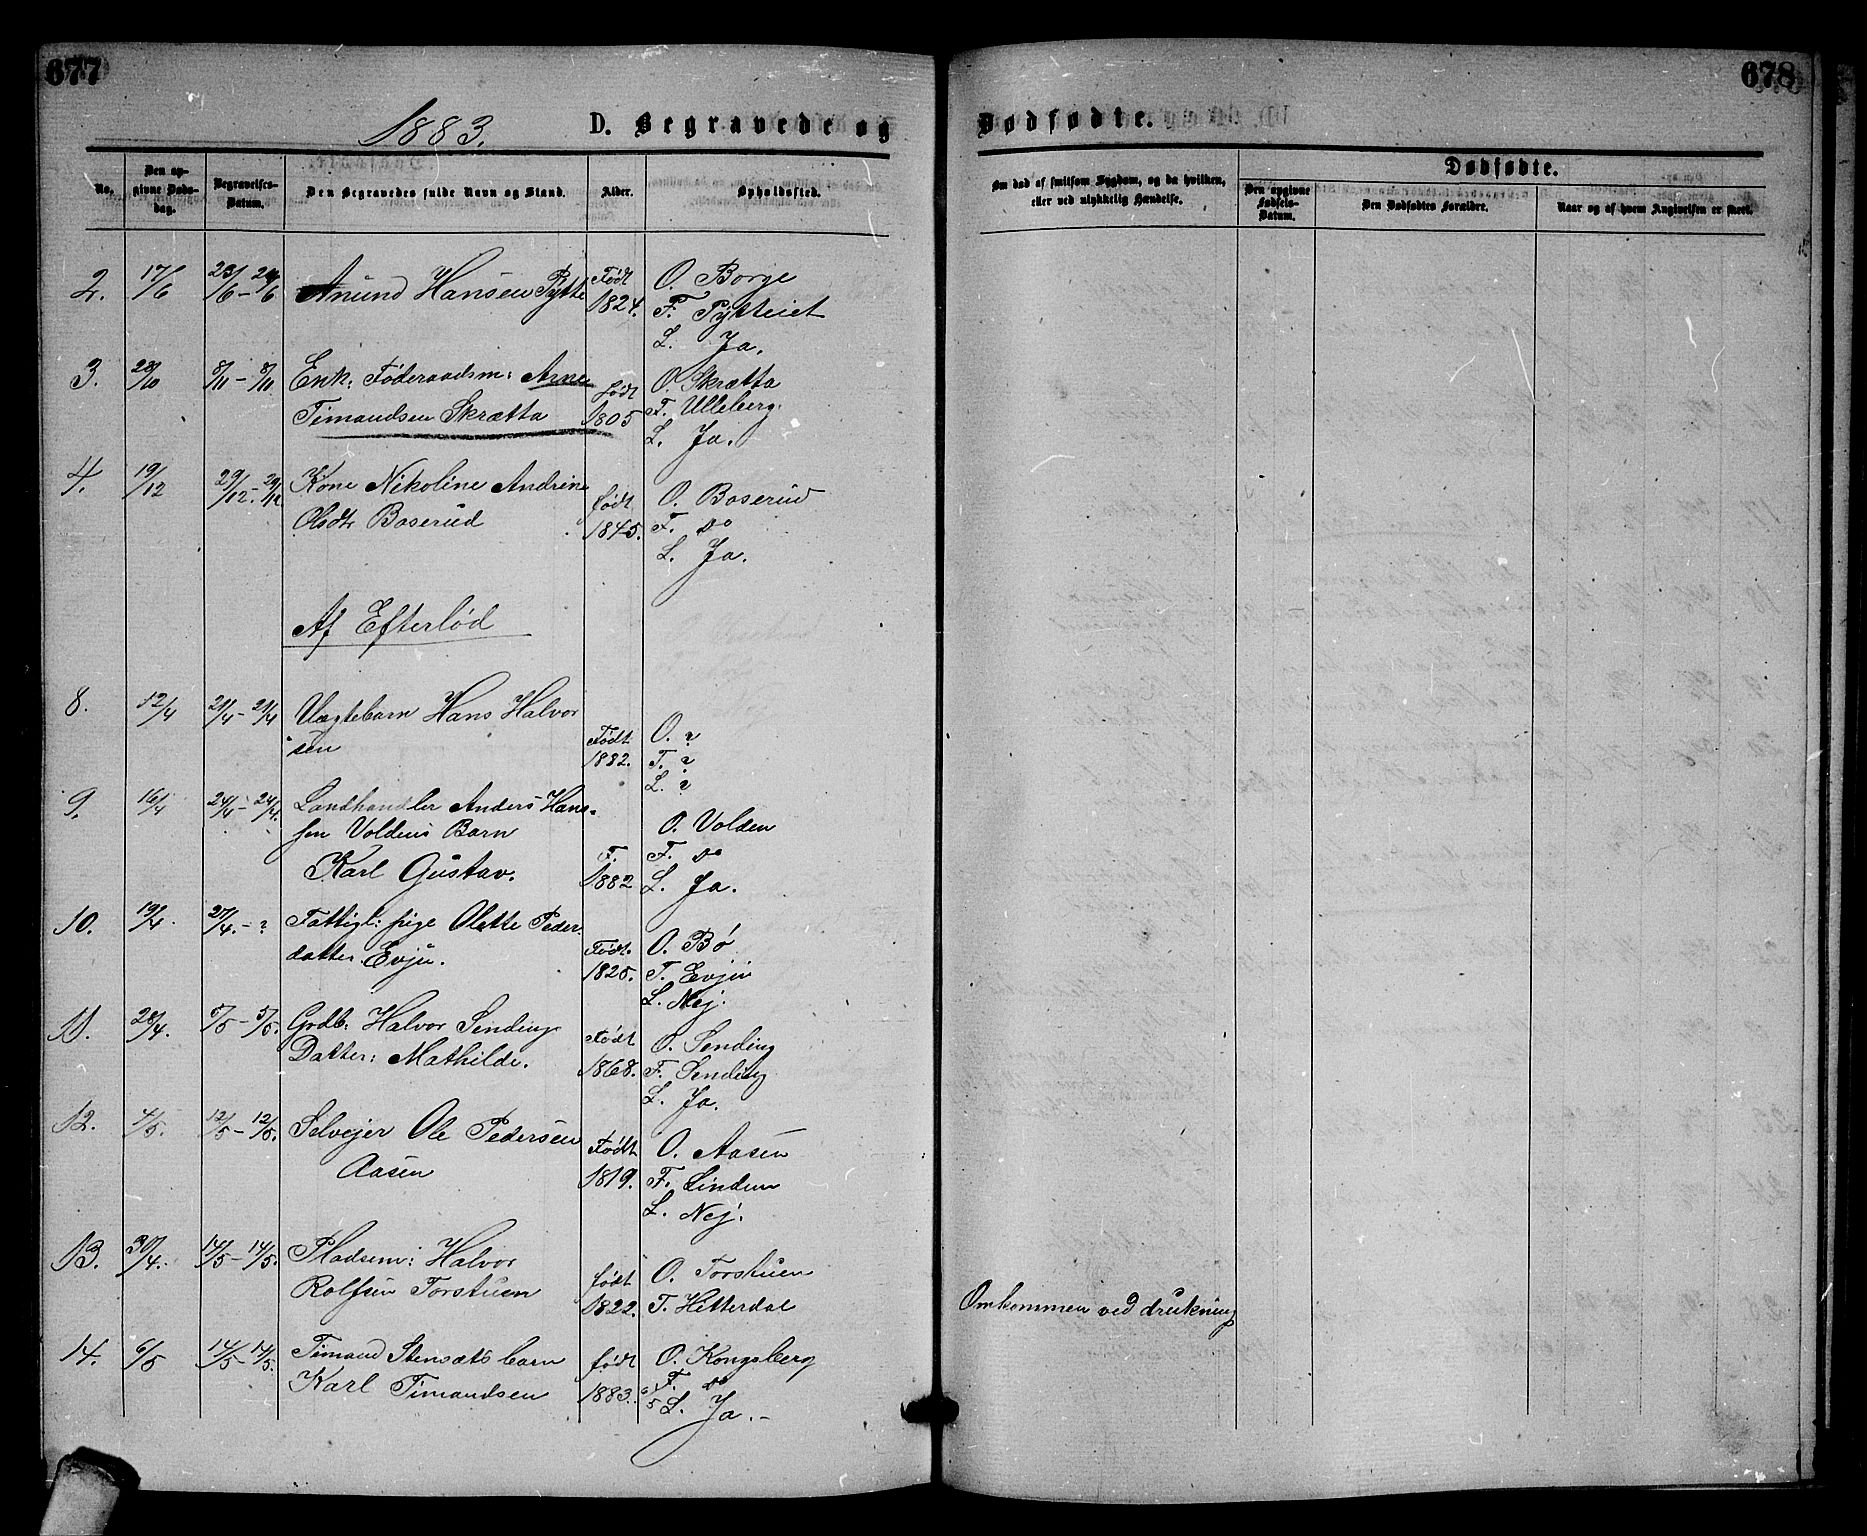 677
678
1883.
D. Begravede og
Dødfødte.
No.
Den opgivne Dødsdag.
Begravelses-Datum.
Den Begravedes fulde Navn og Stand.
Alder.
Opholdssted.
Om død af smitsom Sygdom, og da hvilken,
eller ved ulykkelig Hændelse.
Dødfødte.
Den opgivne Fødsels-Datum.
Den Dødfødtes Forældre.
Naar og af hvem Angivelsen er skeet.
2. 17/6 23/6 - 24/6 Anund Hansen Pytte Født 1824. O. Borge
F. Pytteiet
L. Ja.
3. 28/10 8/11 - 8/11 Enk: Føderaadsm: Arne født O. Skrætta
Timandsen Skrætta 1805 F. Ulleberg.
L. Ja.
4. 19/12 29/12 - 29/12 Kone Nikoline Andrine født O. Boserud
Olsdt. Boserud 1845. F. do
L. Ja.
Af Efterlød
8. 12/4 21/4 - 21/4 Vægtebarn Hans Halvor
sen Født 1882. O. ?
F. ?
L. ?
9. 16/4 24/4 - 24/4. Landhandler Anders Han-
sen Voldens Barn O. Volden
Karl Gustav. F. 1882 F. do
L. Ja.
10. 19/4. 27/4. - ? Fattigl: pige Olette Peder
datter Evju. Født. 1825. O. Bø
F. Evju
L. Nej.
11. 28/4. 5/5 - 5/5. Grdb: Halvor Sendings Født O. Sending
Datter: Mathilde. 1868. F. Sending
L. Ja.
12. 4/5. 12/5 - 12/5. Selvejer Ole Pedersen Født O. Aasen
Aasen 1819. F. Lindem
L. Nej.
13. 30/4. 14/5 - 14/5. Pladsem: Halvor født O. Torstuen
Rolfsen Torstuen 1822. F. Hitterdal Omkommen ved drukning
14. 6/5 14/5 - 14/5. Timand Stensæts barn født O. Kongsberg
Karl Timandsen 1883. 6/5 F. do
L. Ja.-